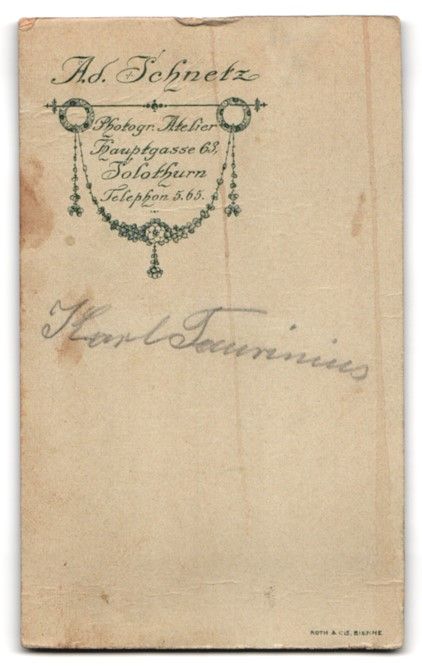 Ad. Schnetz
Photogr. Atelier
Hauptgasse 63,
Solothurn
Telephon 5.65.
Karl Taurinius
ROTH & CIE, BIENNE